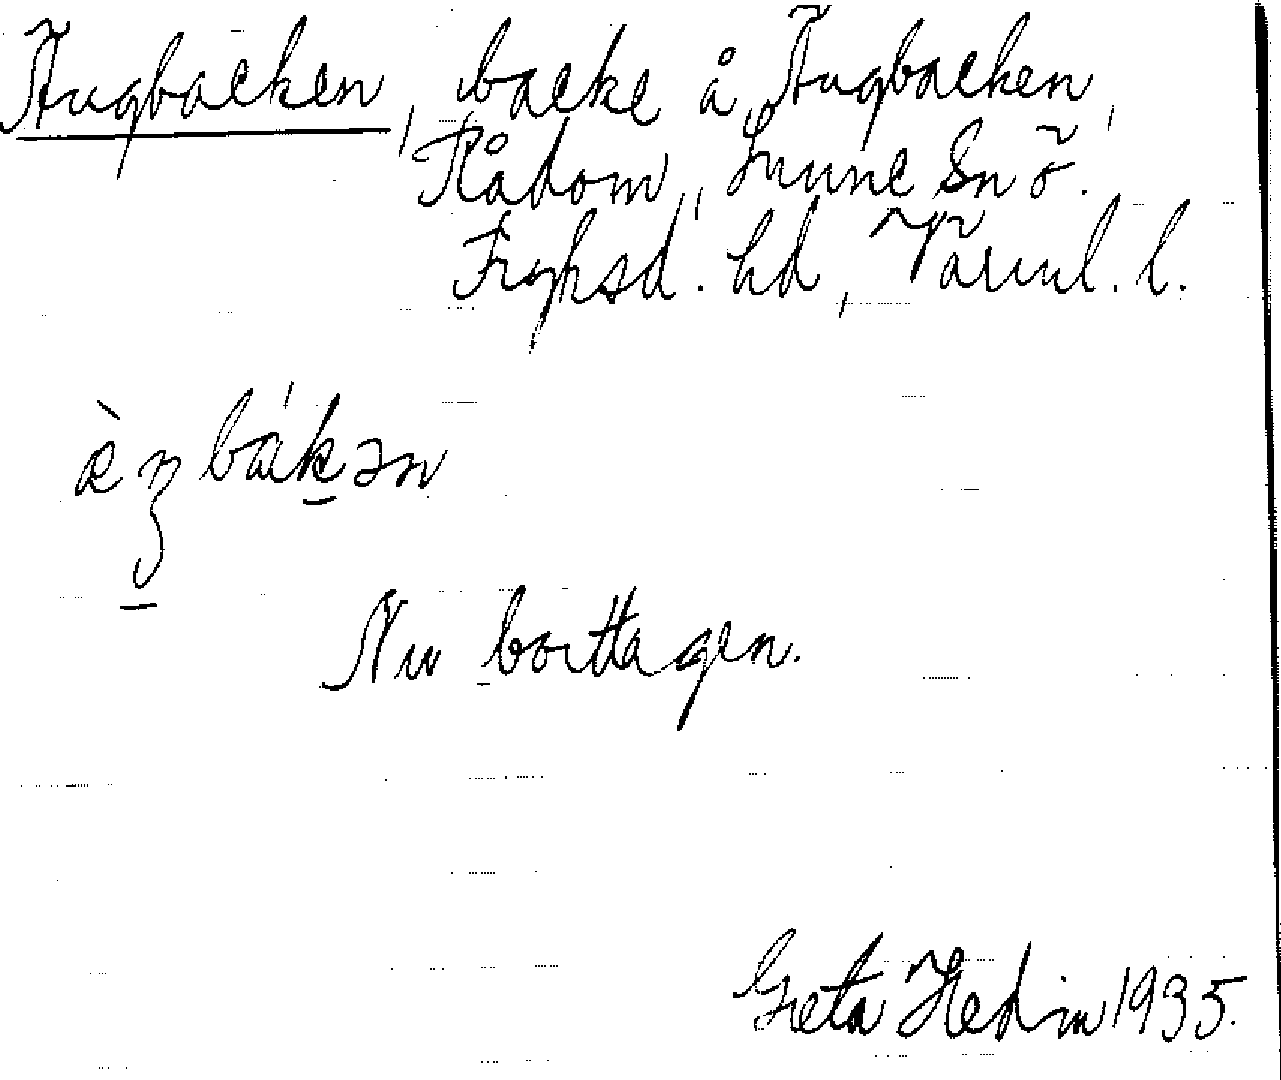 Ängbacken, backe å Ängbacken,
Rådom, Sunne Sn ö.
Fryksd. hd, Värml. l.
Nu borttagen.
Greta Hedin 1935.